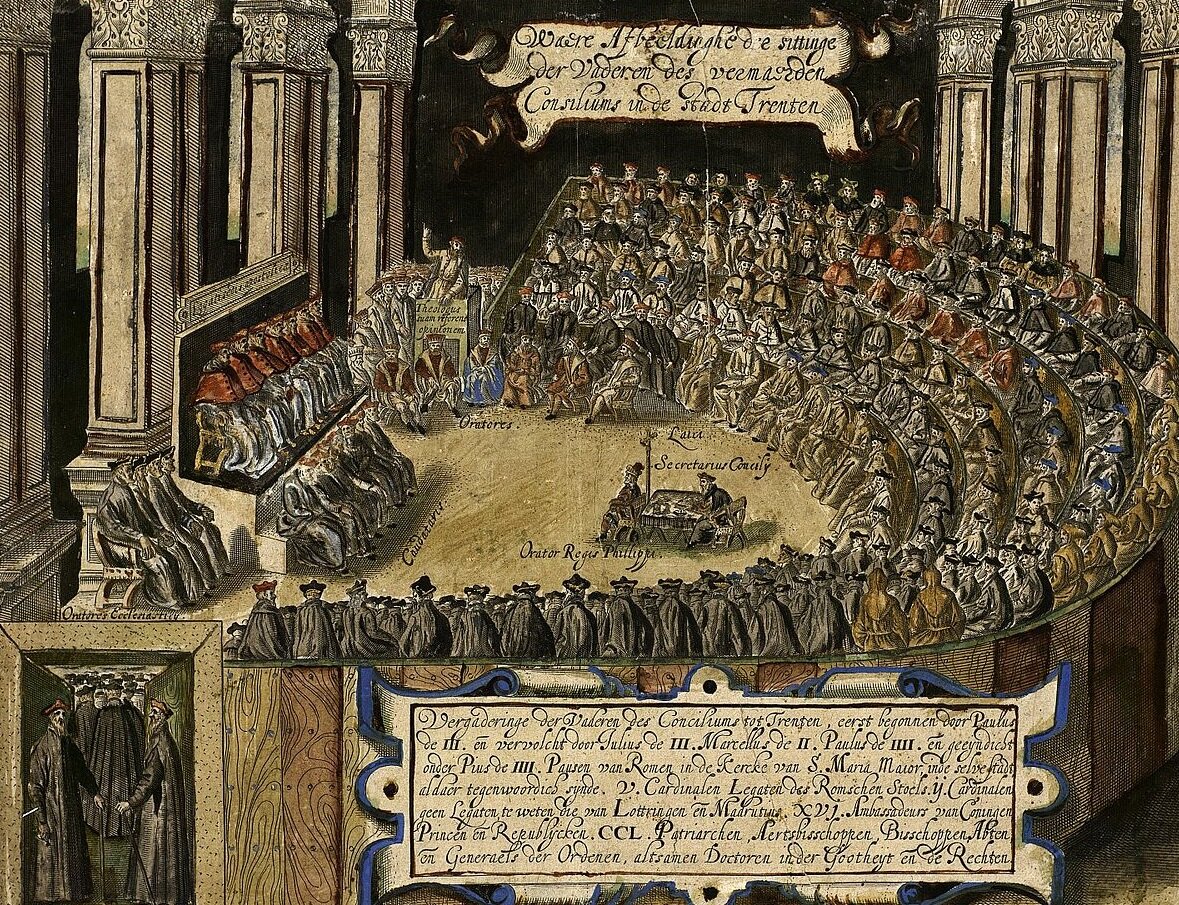 Waere Afbeeldinghe d'e sittinge
der Vaderen des vermaerden
Consiliums in de stadt Trenten
Theologus
suam referens
opinionem
Oratores.
Laici
Secretarius Concilij
Caudatarij
Orator Regis Philippi.
Oratores Ecclesiastici
Vergaderinge der Vaderen des Conciliums tot Trenten, eerst begonnen door Paulus
de III. en vervolcht door Julius de III. Marcellus de II. Paulus de IIII. en geeyndicht
onder Pius de IIII. Pausen van Romen in de Kercke van S. Maria Maior, inde selve stadt
aldaer tegenwoordich synde. V. Cardinalen Legaten des Romschen Stoels. ij. Cardinalen
geen Legaten, te weten die van Lottringen en Madrutius, XVJ. Ambassadeurs van Coningen
Princen en Republycken. CCL. Patriarchen, Aertsbisschoppen, Bisschoppen, Abten
en Generaels der Ordenen, altsamen Doctoren inder Gootheyt en de Rechten.